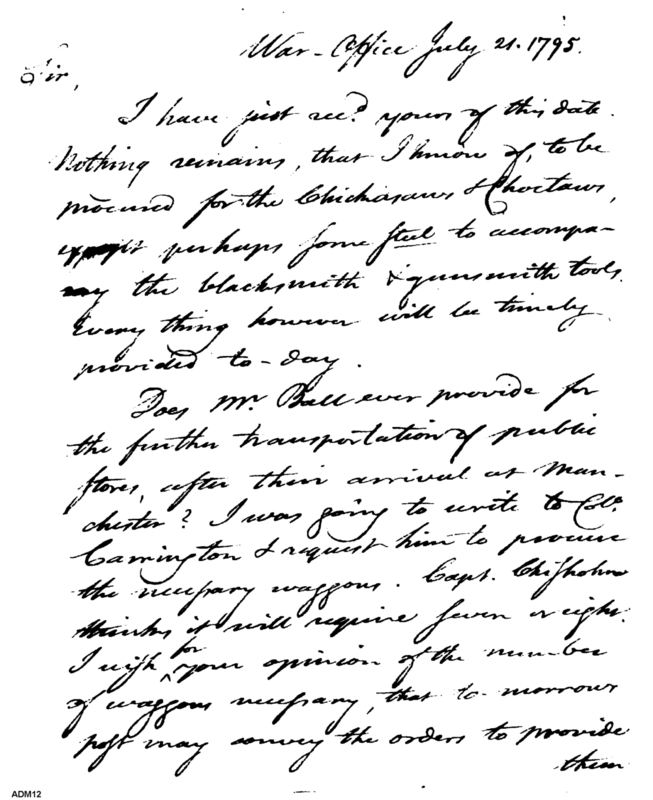 War-Office July 21. 1795.
Sir,
I have just recd. yours of this date.
Nothing remains, that I know of, to be
procured for the Chickasaws & Choctaws,
except perhaps some steel to accompa-
ny the blacksmith & gunsmith tools.
Every thing however will be timely
provided to-day.
Does Mr. Ball ever provide for
the further transportation of public
stores, after their arrival at Man-
chester? I was going to write to Colo.
Carrington & request him to procure
the necessary waggons. Capt. Chisholm
thinks it will require seven or eight.
I wish for your opinion of the number
of waggons necessary, that to-morrows
post may convey the orders to provide
them
ADM12